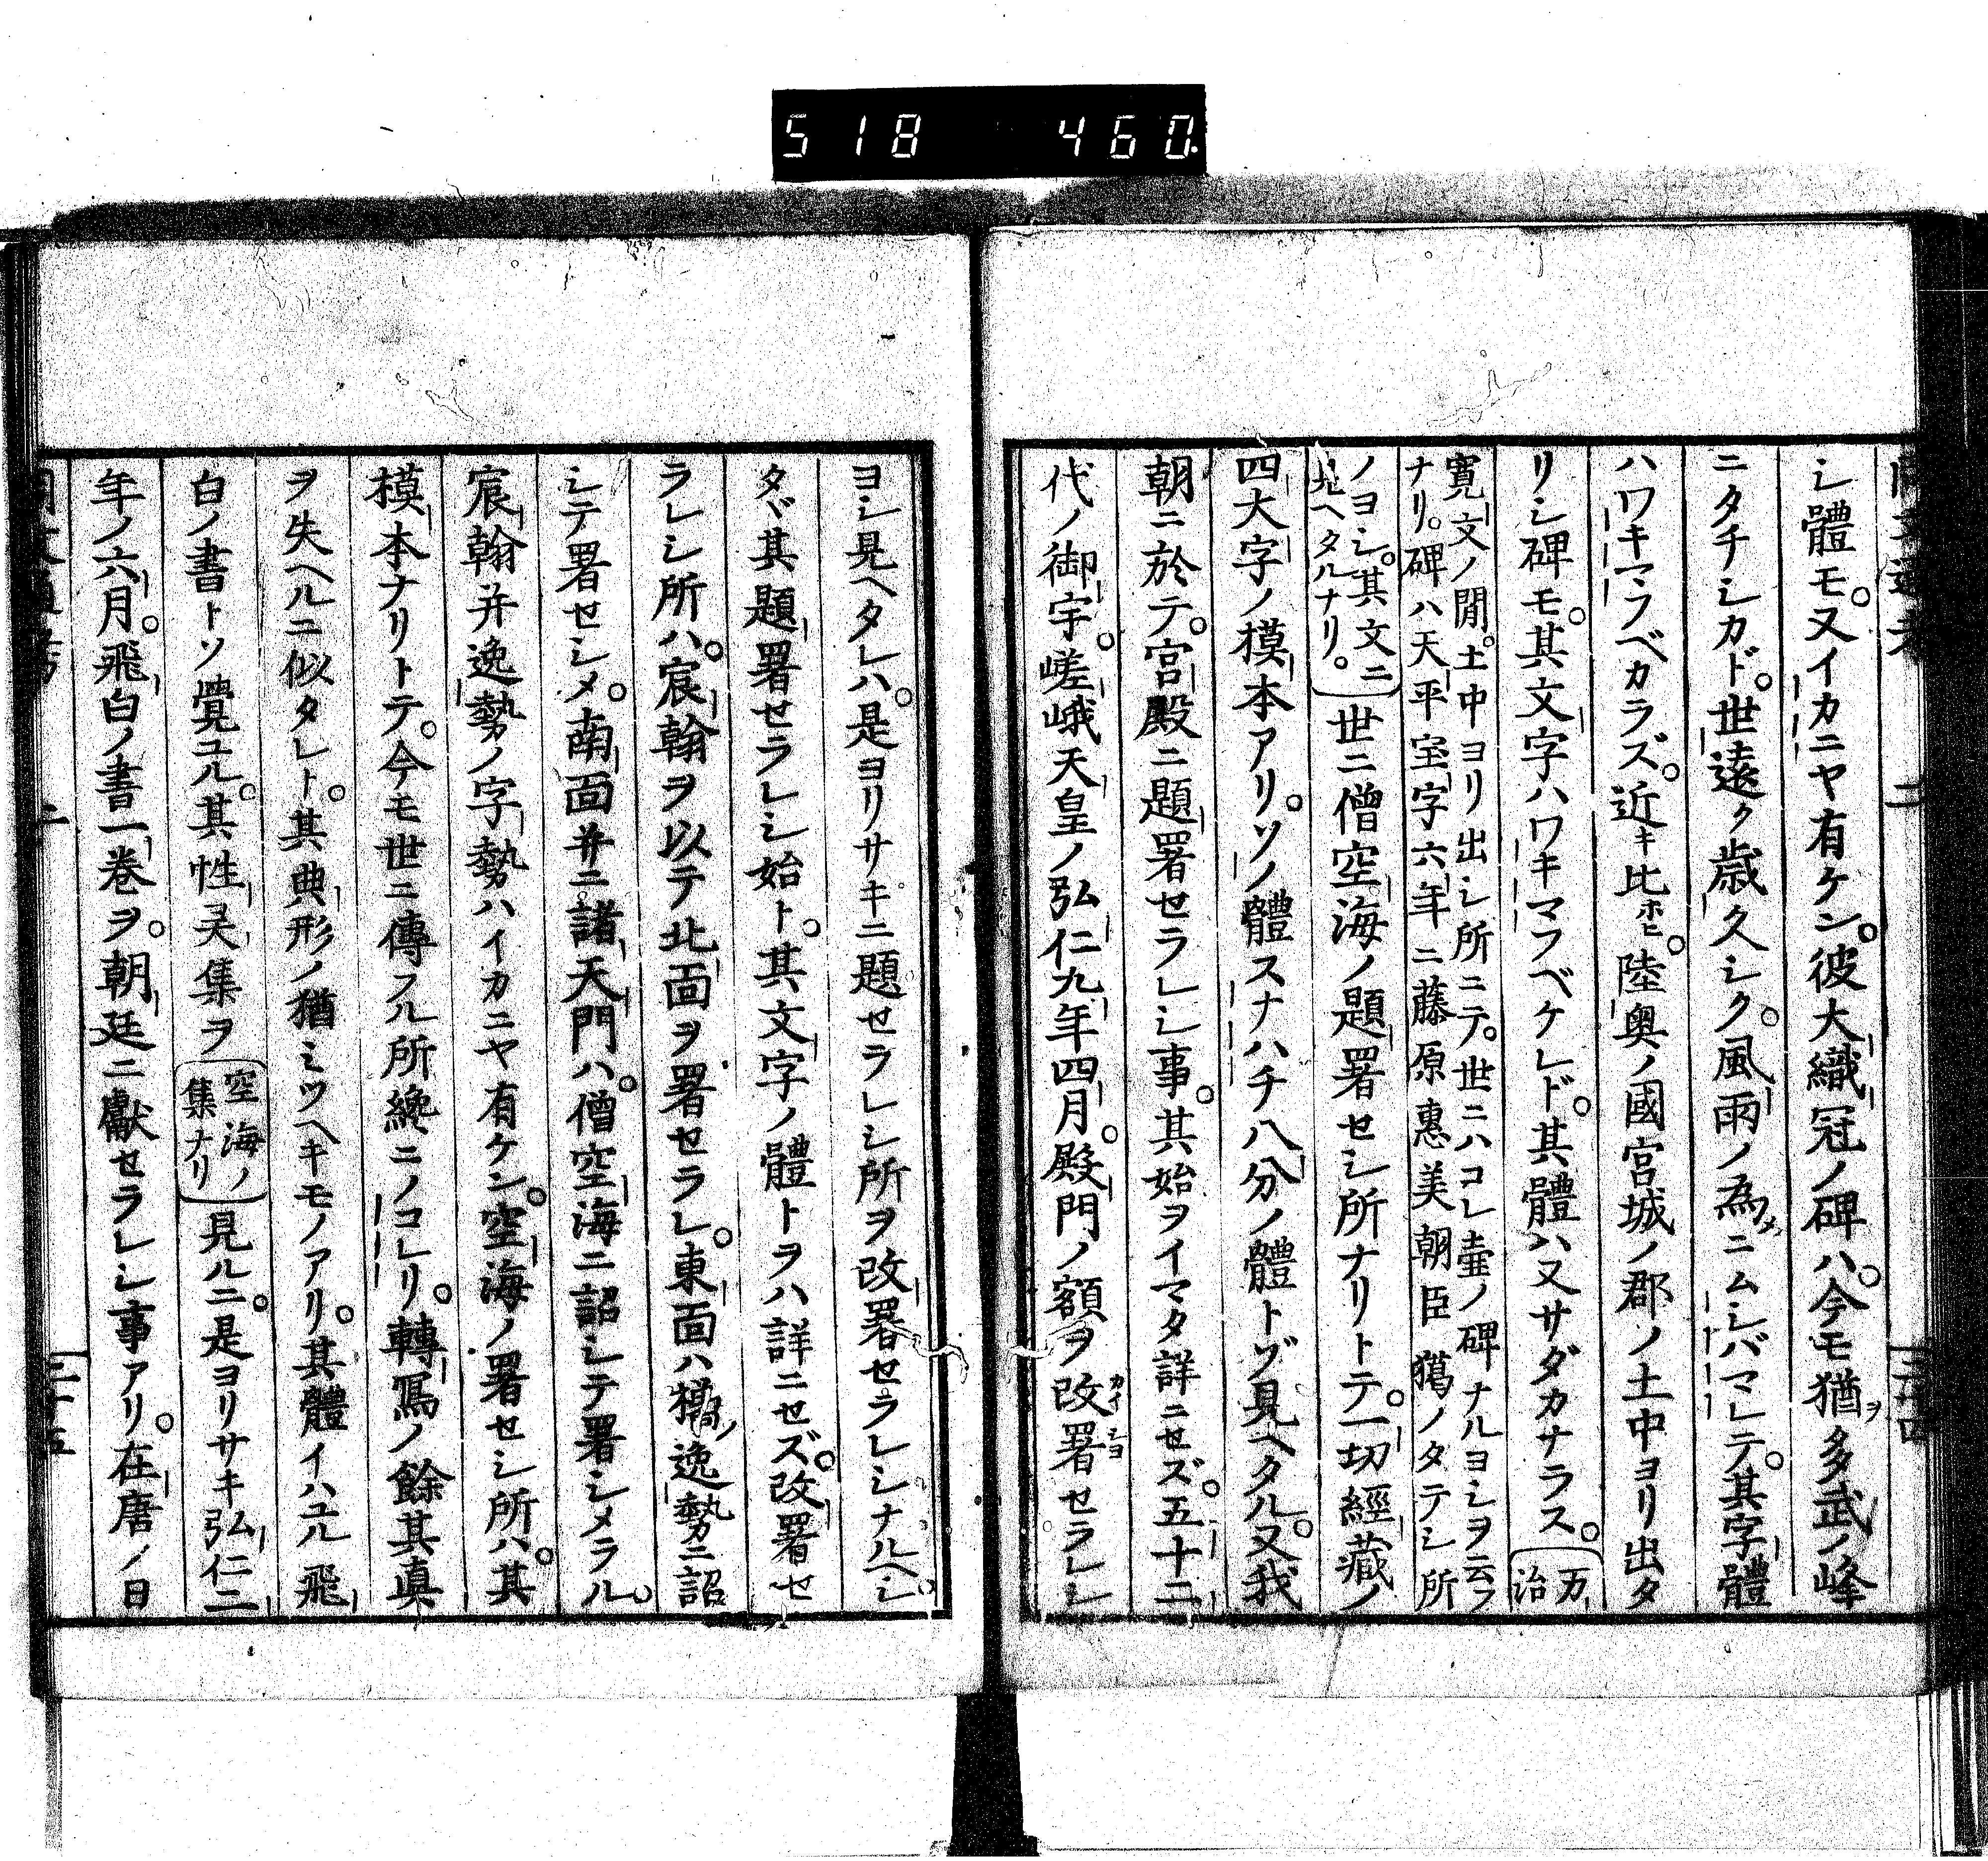 518 460.
シ體モ。又イカニヤ有ケン。彼大織冠ノ碑ハ。今モ猶ヲ多武ノ峰
ニタチシカド。世遠ク歳久シク。風雨ノ為メニムシバマレテ。其字體
ハワキマフベカラズ。近キ比ホヒ。陸奥ノ國宮城ノ郡ノ土中ヨリ出タ
リシ碑モ。其文字ハワキマフベケレド。其體ハ又サダカナラス。万治
寛文ノ間。土中ヨリ出シ所ニテ。世ニハコレ壷ノ碑ナルヨシヲ云フ
ナリ。碑ハ天平宝字六年ニ藤原惠美朝臣獦ノタテシ所
ノヨシ。其文ニ
見ヘタルナリ。
世ニ僧空海ノ題署セシ所ナリトテ。一切經藏ノ
四大字ノ模本アリ。ソノ體スナハチ八分ノ體トゾ見ヘタル。又我
朝ニ於テ。宮殿ニ題署セラレシ事。其始ヲイマタ詳ニセズ。五十二
代ノ御宇。嵯峨天皇ノ弘仁九年四月。殿門ノ額ヲ改署カイシヨセラレシ
ヨシ見ヘタレハ。是ヨリサキニ題セラレシ所ヲ改署セラレシナルヘシ。
タヾ其題署セラレシ始ト。其文字ノ體トヲハ詳ニセズ。改署セ
ラレシ所ハ。宸翰ヲ以テ北面ヲ署セラレ。東面ハ橘ノ逸勢ニ詔
シテ署セシメ。南面并ニ諸天門ハ。僧空海ニ詔シテ署シメラル。
宸翰并逸勢ノ字勢ハイカニヤ有ケン。空海ノ署セシ所ハ。其
模本ナリトテ。今モ世ニ傳フル所纔ニノコレリ。轉寫ノ餘其真
ヲ失ヘルニ似タレト。其典形ノ猶ミツヘキモノアリ。其體イハユル飛
白ノ書トソ覚ユル。其性灵集ヲ
空海ノ
集ナリ
見ルニ。是ヨリサキ弘仁二
年ノ六月。飛白ノ書一巻ヲ。朝廷ニ獻セラレシ事アリ。在唐ノ日